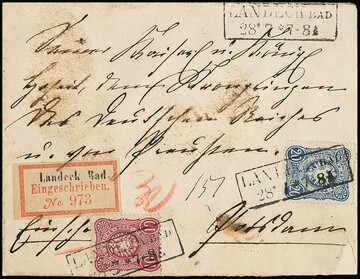 LANDECK BAD
28 7 87-8A
Seiner Kaiserl. u. Königl.
Hoheit, dem Kronprinzen
des Deutschen Reiches
u. von Preußen.
Landeck Bad.
Eingeschrieben.
No. 973
157
20 20
LANDECK BAD
28 8A
10 10
LANDECK BAD
Potsdam